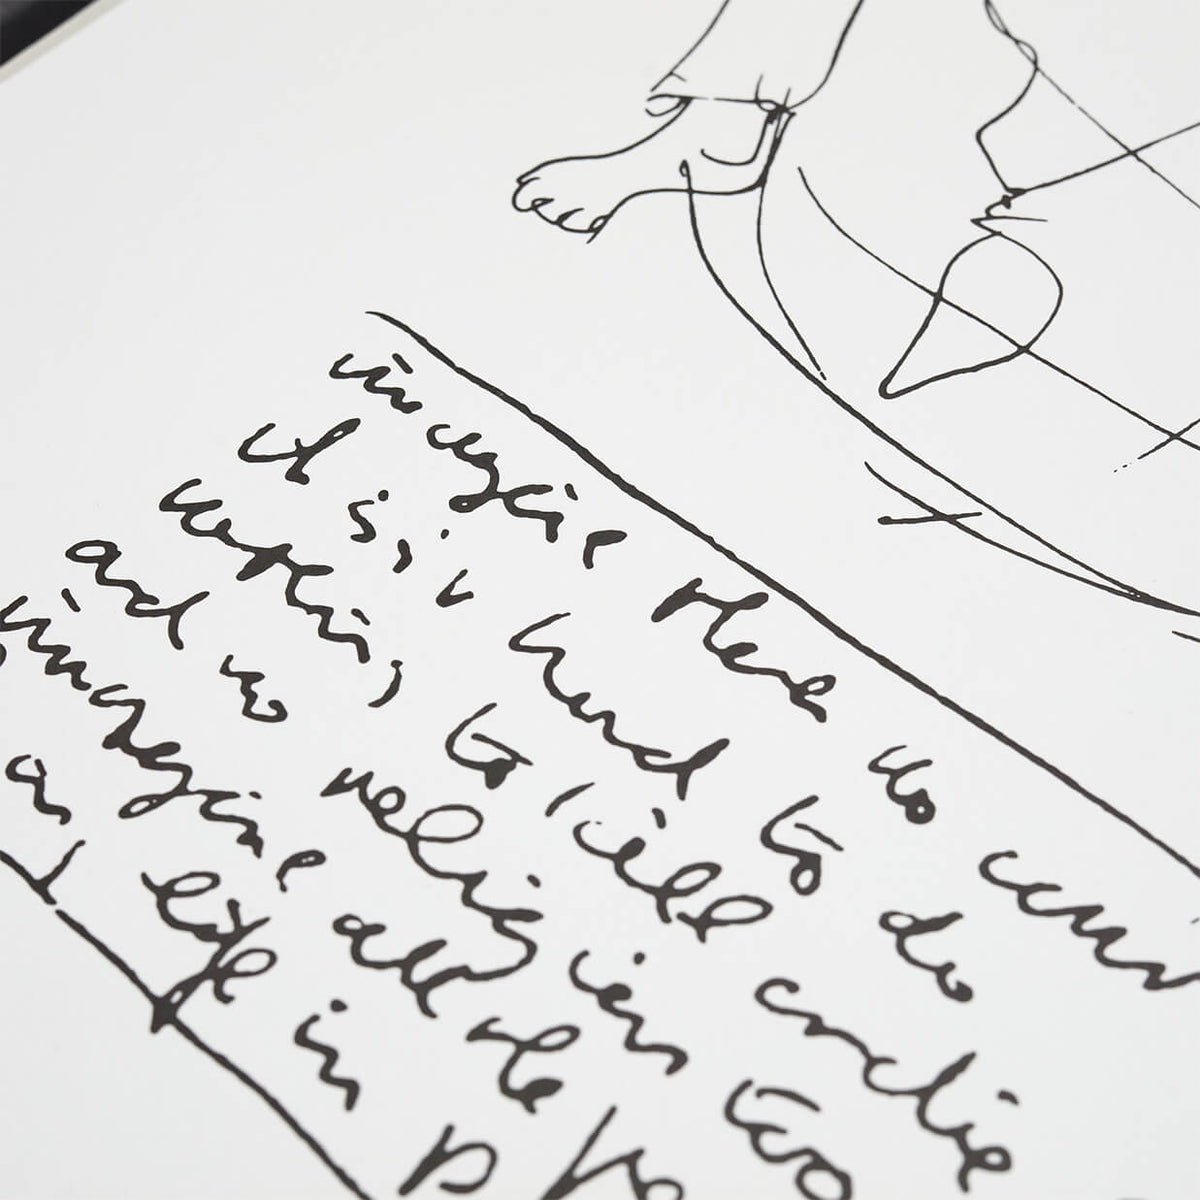 imagine there no coun
it is,i hard to do
nothin, to kill or die
and no religion too
imagine all the pe
life in p